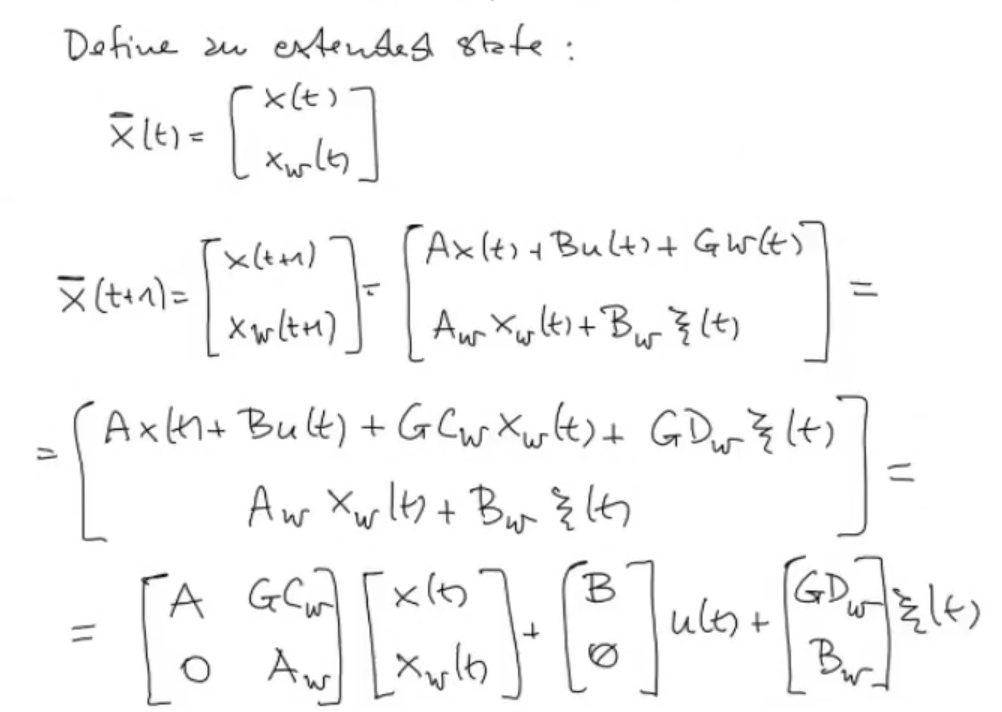 Define an extended state :
x̄(t) = [ x(t) ; x_w(t) ]
x̄(t+1) = [ x(t+1) ; x_w(t+1) ] = [ Ax(t) + Bu(t) + Gw(t) ; A_w x_w(t) + B_w ξ(t) ] =
= [ Ax(t) + Bu(t) + GC_w x_w(t) + GD_w ξ(t) ; A_w x_w(t) + B_w ξ(t) ] =
= [ A GC_w ; 0 A_w ] [ x(t) ; x_w(t) ] + [ B ; ∅ ] u(t) + [ GD_w ; B_w ] ξ(t)